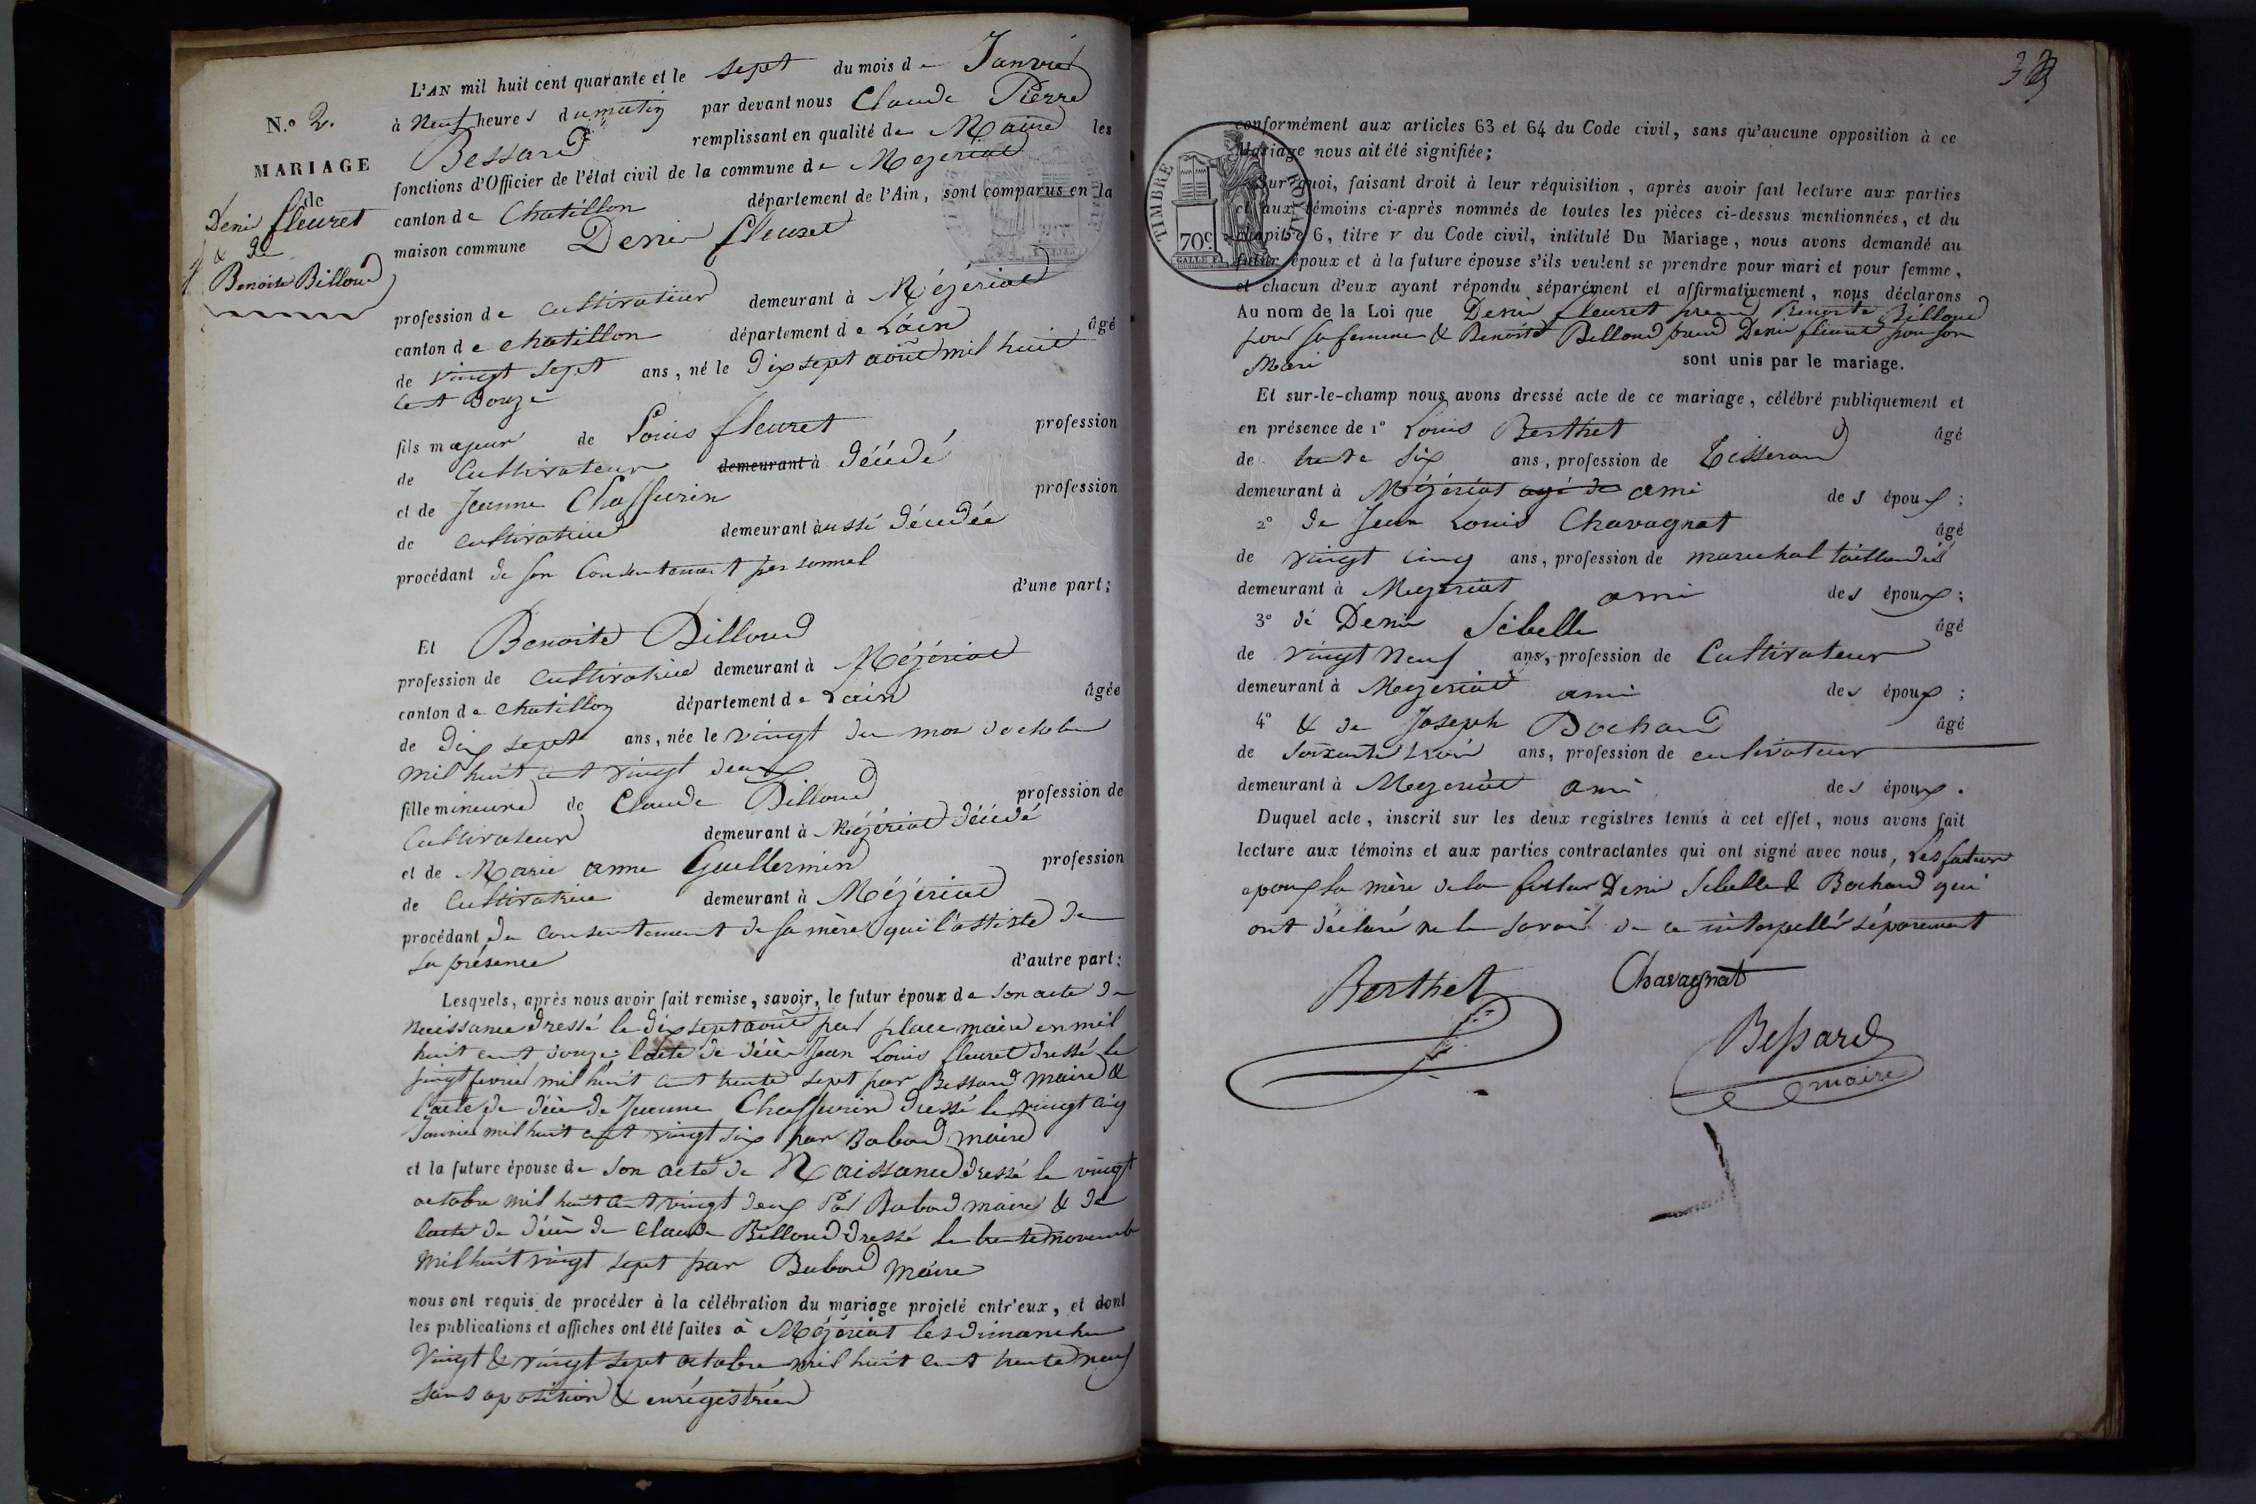 N.o 2.
MARIAGE
de
Denis fleuret
& de
Benoite Billoud
L'AN mil huit cent quarante et le sept du mois de Janvier
à Neuf heures du matin par devant nous Claude Pierre
Bessard remplissant en qualité de Maire les
fonctions d'Officier de l'état civil de la commune de Mezeriat
canton de Chatillon département de l'Ain, sont comparus en la
maison commune Denis fleuret
profession de cultivateur demeurant à Mézériat
canton de chatillon département de Lain âgé
de vingt sept ans, né le dix sept août mil huit
cent douze
fils majeur de Louis fleuret profession
de Cultivateur demeurant à décédé
et de Jeanne Chaffurin profession
de cultivatrice demeurant aussi décédée
procédant de son Consentement personnel
d'une part;
Et Benoite Billoud
profession de cultivatrice demeurant à Mézériat
canton de chatillon département de Lain âgée
de dix sept ans, née le vingt du mois doctobre
mil huit cent vingt deux
fille mineure de Claude Billoud profession de
Cultivateur demeurant à Mézériat décédé
et de Marie anne Guillermin profession
de Cultivatrice demeurant à Mézériat
procédant du consentement de sa mère qui l'assiste de
sa présence d'autre part;
Lesquels, après nous avoir fait remise, savoir, le futur époux de son acte de
Naissance dressé le dix sept août par place maire en mil
huit cent douze; lacte de décès Jean Louis fleuret dressé le
vingt fevrier mil huit cent trente sept par Bessard maire &
l'acte de décès de Jeanne Chaffurin dressé le vingt cinq
Janvier mil huit cent vingt six par Babad maire
et la future épouse de son acte de Naissance dressé le vingt
octobre mil huit cent vingt deux Par Babad maire & de
lacte de décès de Claude Billoud dressé le trente novembre
mil huit vingt sept par Babad maire
nous ont requis de procéder à la célébration du mariage projeté entr'eux, et dont
les publications et affiches ont été faites à Mézériat les dimanches
Vingt & vingt sept octobre mil huit cent trente neuf
sans oposition & enrégistrées
conformément aux articles 63 et 64 du Code civil, sans qu'aucune opposition à ce
Mariage nous ait été signifiée;
TIMBRE ROYAL
70c
Sur quoi, faisant droit à leur réquisition, après avoir fait lecture aux parties
et aux témoins ci-après nommés de toutes les pièces ci-dessus mentionnées, et du
chapitre 6, titre v du Code civil, intitulé Du Mariage, nous avons demandé au
futur époux et à la future épouse s'ils veulent se prendre pour mari et pour femme,
et chacun d'eux ayant répondu séparément et affirmativement, nous déclarons
Au nom de la Loi que Denis fleuret prend Benoite Billoud
pour sa femme & Benoite Billoud prend Denis fleuret pour son
Mari sont unis par le mariage.
Et sur-le-champ nous avons dressé acte de ce mariage, célébré publiquement et
en présence de 1° Louis Berthet âgé
de trente six ans, profession de Tisserand
demeurant à Mézériat agé de ami des époux;
2° de Jean Louis Chavagnat âgé
de vingt cinq ans, profession de marechal taillandier
demeurant à Mezeriat ami des époux;
3° de Denis Sibelle âgé
de vingt Neuf ans, profession de Cultivateur
demeurant à Mezeriat ami des époux;
4° & de Joseph Bochard âgé
de soixante trois ans, profession de cultivateur
demeurant à Mezeriat ami des époux.
Duquel acte, inscrit sur les deux registres tenus à cet effet, nous avons fait
lecture aux témoins et aux parties contractantes qui ont signé avec nous, Les futurs
epoux la mère de la Denis Sibelle & Bochard qui
ont déclaré ne le savoir de ce interpellés séparement
Berthet
Chavagnat
Bessard
maire